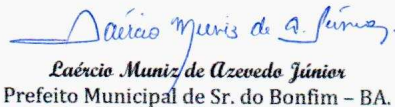 Laércio Muniz de A. Júnior.
Laércio Muniz de Azevedo Júnior
Prefeito Municipal de Sr. do Bonfim – BA.